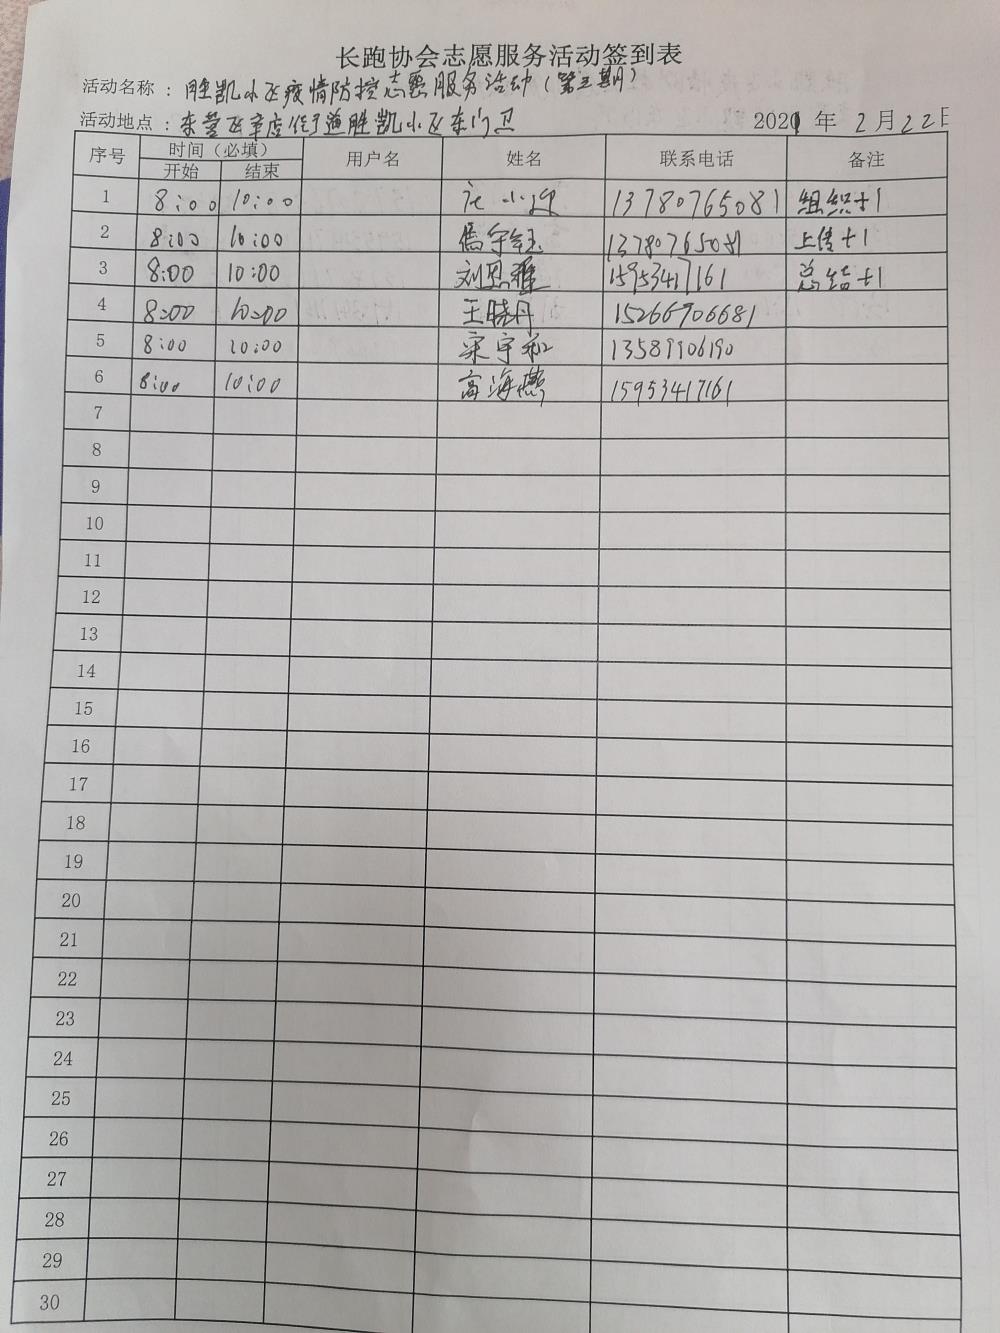 长跑协会志愿服务活动签到表
活动名称：胜凯小区疫情防控志愿服务活动（第三期）
活动地点：东营区辛店街道胜凯小区东门卫 2021年2月22日
序号 时间（必填） 用户名 姓名 联系电话 备注
开始 结束
1 8:00 10:00 小迎 13780765081 组织+1
2 8:00 10:00 13780765081 上传+1
3 8:00 10:00 刘恩雅 15953417161 总结+1
4 8:00 10:00 王晓丹 15266906681
5 8:00 10:00 宋宇和 13589906190
6 8:00 10:00 高海燕 15953417161
7
8
9
10
11
12
13
14
15
16
17
18
19
20
21
22
23
24
25
26
27
28
29
30